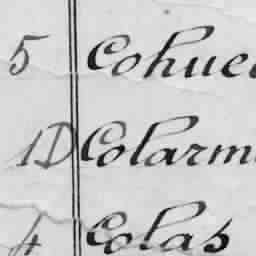 5 Cohue
1D Colarm
4 Colas